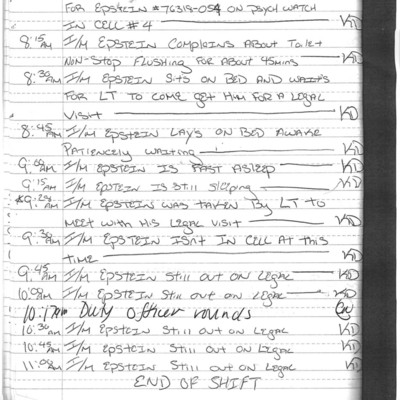 FOR EPSTEIN #76318-054 ON PSYCH WATCH
IN CELL #4 KD
8:15 AM I/M EPSTEIN COMPLAINS ABOUT Toilet
NON-STOP FLUSHING FOR ABOUT 45mins KD
8:30 AM I/M EPSTEIN SITS ON BED AND WAITS
FOR LT TO COME GET HIM FOR A LEGAL
VISIT KD
8:45 AM I/M EPSTEIN LAYS ON BED AWAKE
PATIENCELY WAITING KD
9:00 AM I/M EPSTEIN IS FAST ASLEEP KD
9:15 AM I/M EPSTEIN IS STILL Sleeping KD
9:28 AM I/M EPSTEIN WAS TAKEN BY LT TO
MEET WITH HIS LEGAL VISIT KD
9:30 AM I/M EPSTEIN ISNT IN CELL AT THIS
TIME KD
9:45 AM I/M EPSTEIN Still OUT ON LEGAL KD
10:00 AM I/M EPSTEIN Still OUT ON LEGAL KD
10:17am Duty Officer rounds
10:30 AM I/M EPSTEIN Still OUT ON LEGAL KD
10:45 AM I/M EPSTEIN Still OUT ON LEGAL KD
11:00 AM I/M EPSTEIN Still OUT ON LEGAL KD
END OF SHIFT